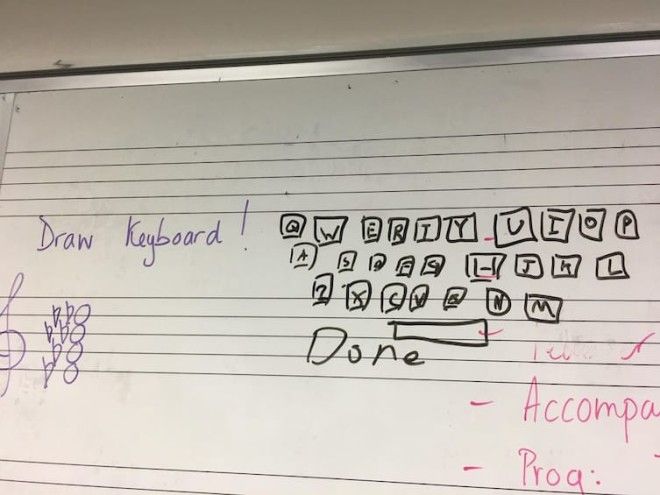 Draw Keyboard!
Q W E R T Y U I O P
A S D F G H J K L
Z X C V B N M
Done
- Accompa
- Prog: